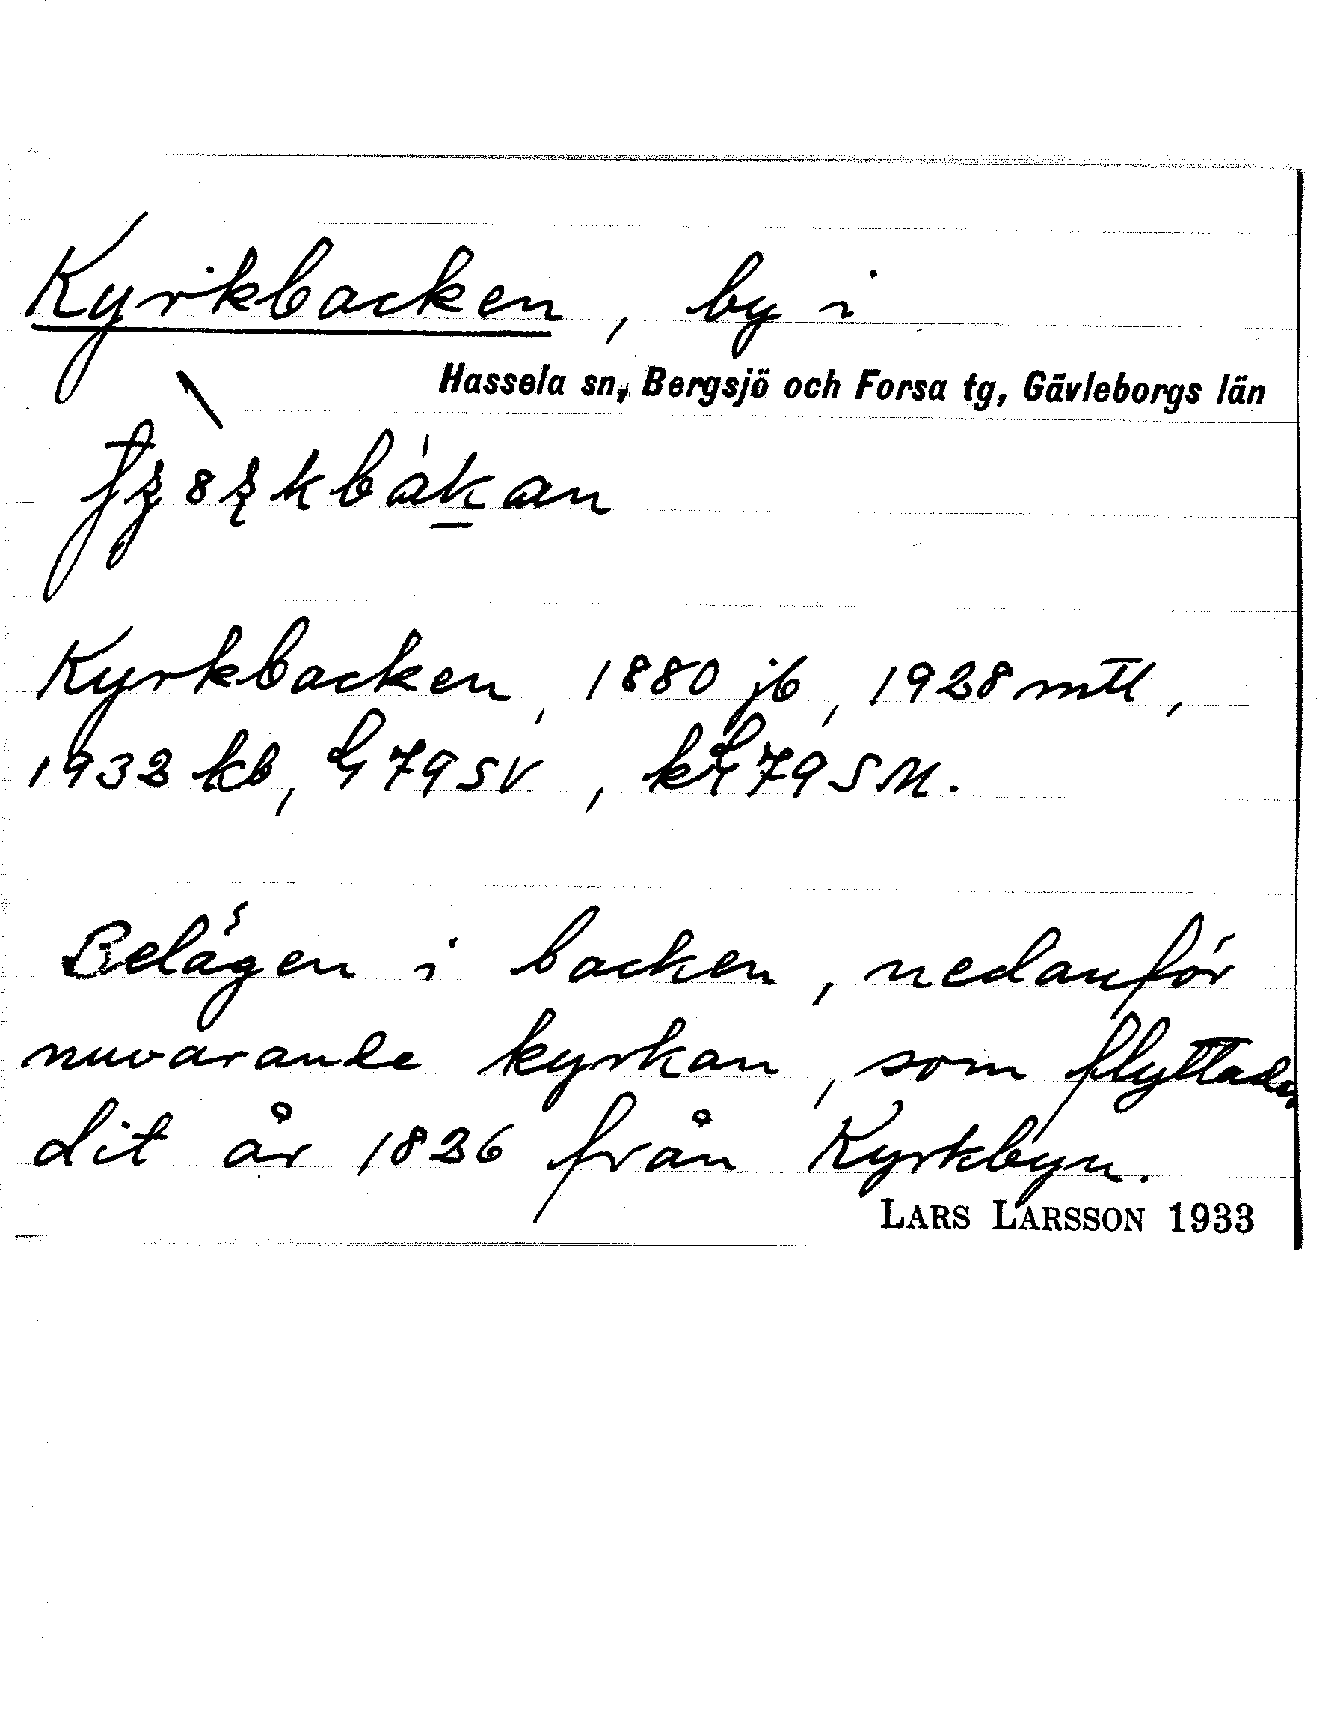 Kyrkbacken, by i
Hassela sn, Bergsjö och Forsa tg, Gävleborgs län
Kyrkbacken, 1880 jb, 1928 mtl,
1932 kb, 79 SV, 79 SM.
Belägen i backen, nedanför
nuvarande kyrkan, som flyttades
dit år 1826 från Kyrkbyn.
LARS LARSSON 1933